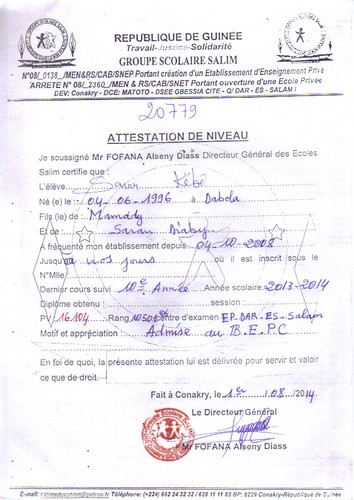 REPUBLIQUE DE GUINEE
Travail-Justice-Solidarité
GROUPE SCOLAIRE SALIM
N°08/_0138_/MEN&RS/CAB/SNEP Portant création d'un Etablissement d'Enseignement Privé
ARRETE N° 08/_2360_/MEN & RS/CAB/SNEP Portant ouverture d'une Ecole Privée
DEV: Conakry - DCE: MATOTO - DSEE GBESSIA CITE - Q/ DAR - ES - SALAM I
20779
ATTESTATION DE NIVEAU
Je soussigné Mr FOFANA Alseny Diass Directeur Général des Ecoles
Salim certifie que :
L'élève Saran Kébé
Né (e) le : 04-06-1996 à Dabola
Fils (le) de : Mamady
Et de : Saran Diaby
A fréquenté mon établissement depuis 04-10-2008
Jusqu'à nos jours où il est inscrit sous le
N°Mlle
Dernier cours suivi 10e Année Année scolaire 2013-2014
Diplôme obtenu : session :
PV : 16104 Rang centre d'examen EP.DAR-ES-Salam
Motif et appréciation : Admise au B.E.P.C
En foi de quoi, la présente attestation lui est délivrée pour servir et valoir
ce que de droit.
Fait à Conakry, le 1er /08/2014
Le Directeur Général
Mr FOFANA Alseny Diass
Téléphone: (+224) 662 24 32 32 / 628 11 11 83 BP: 6229 Conakry-République de Guinée